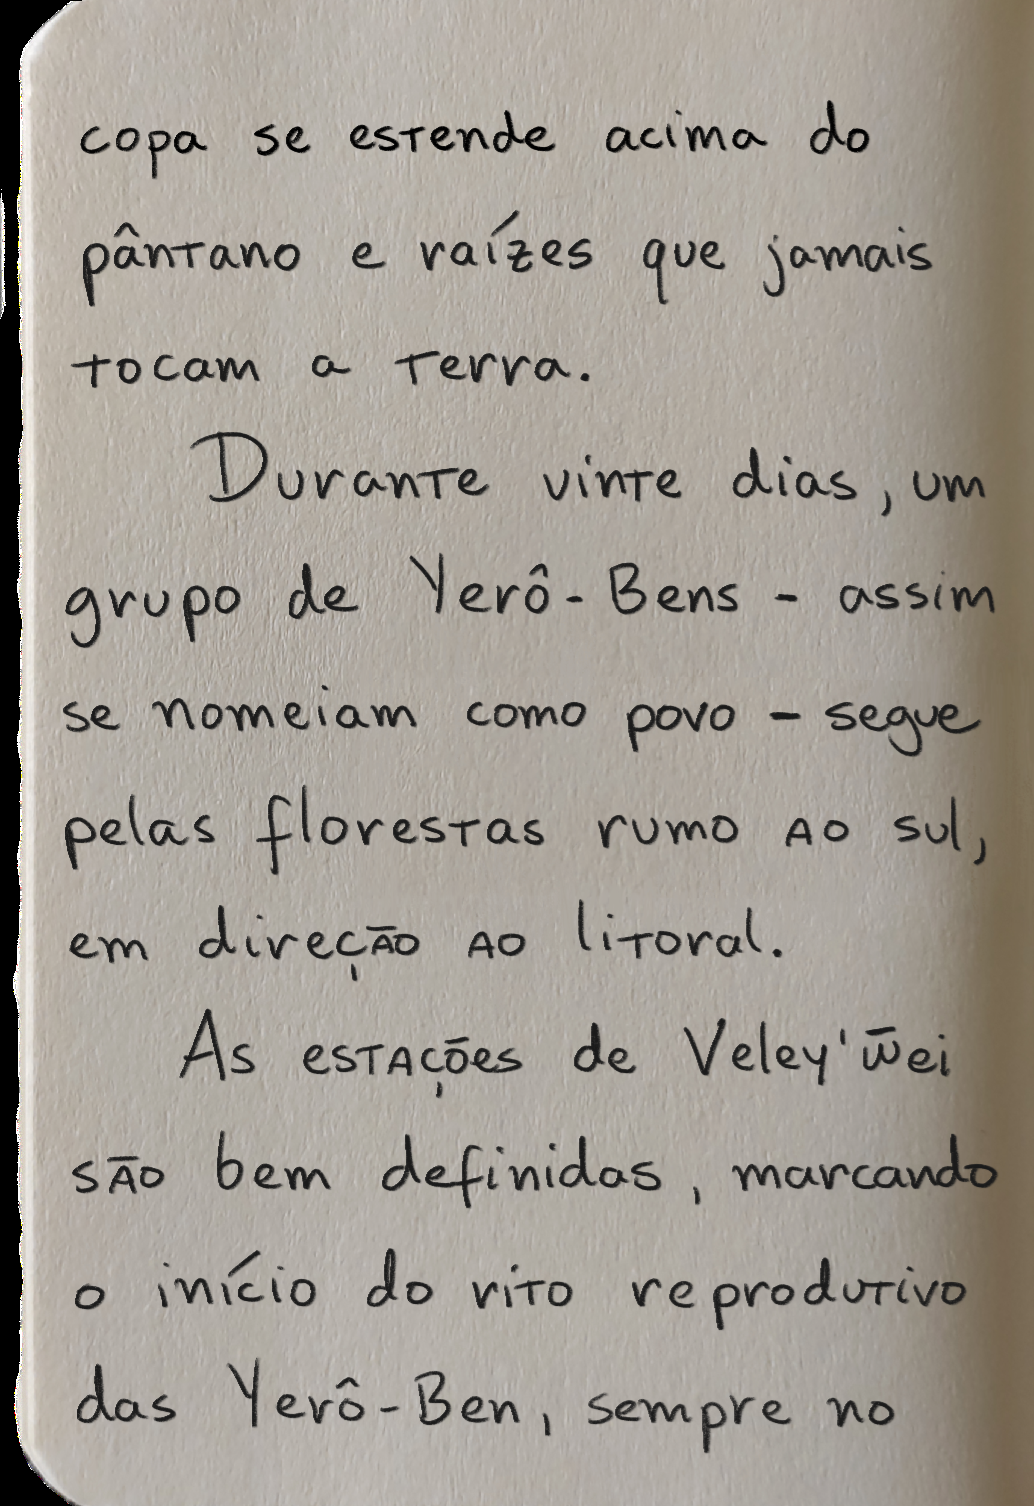 copa se estende acima do
pântano e raízes que jamais
tocam a terra.
Durante vinte dias, um
grupo de Yerô-Bens - assim
se nomeiam como povo - segue
pelas florestas rumo ao sul,
em direção ao litoral.
As estações de Veley'w̄ei
são bem definidas, marcando
o início do rito reprodutivo
das Yerô-Ben, sempre no